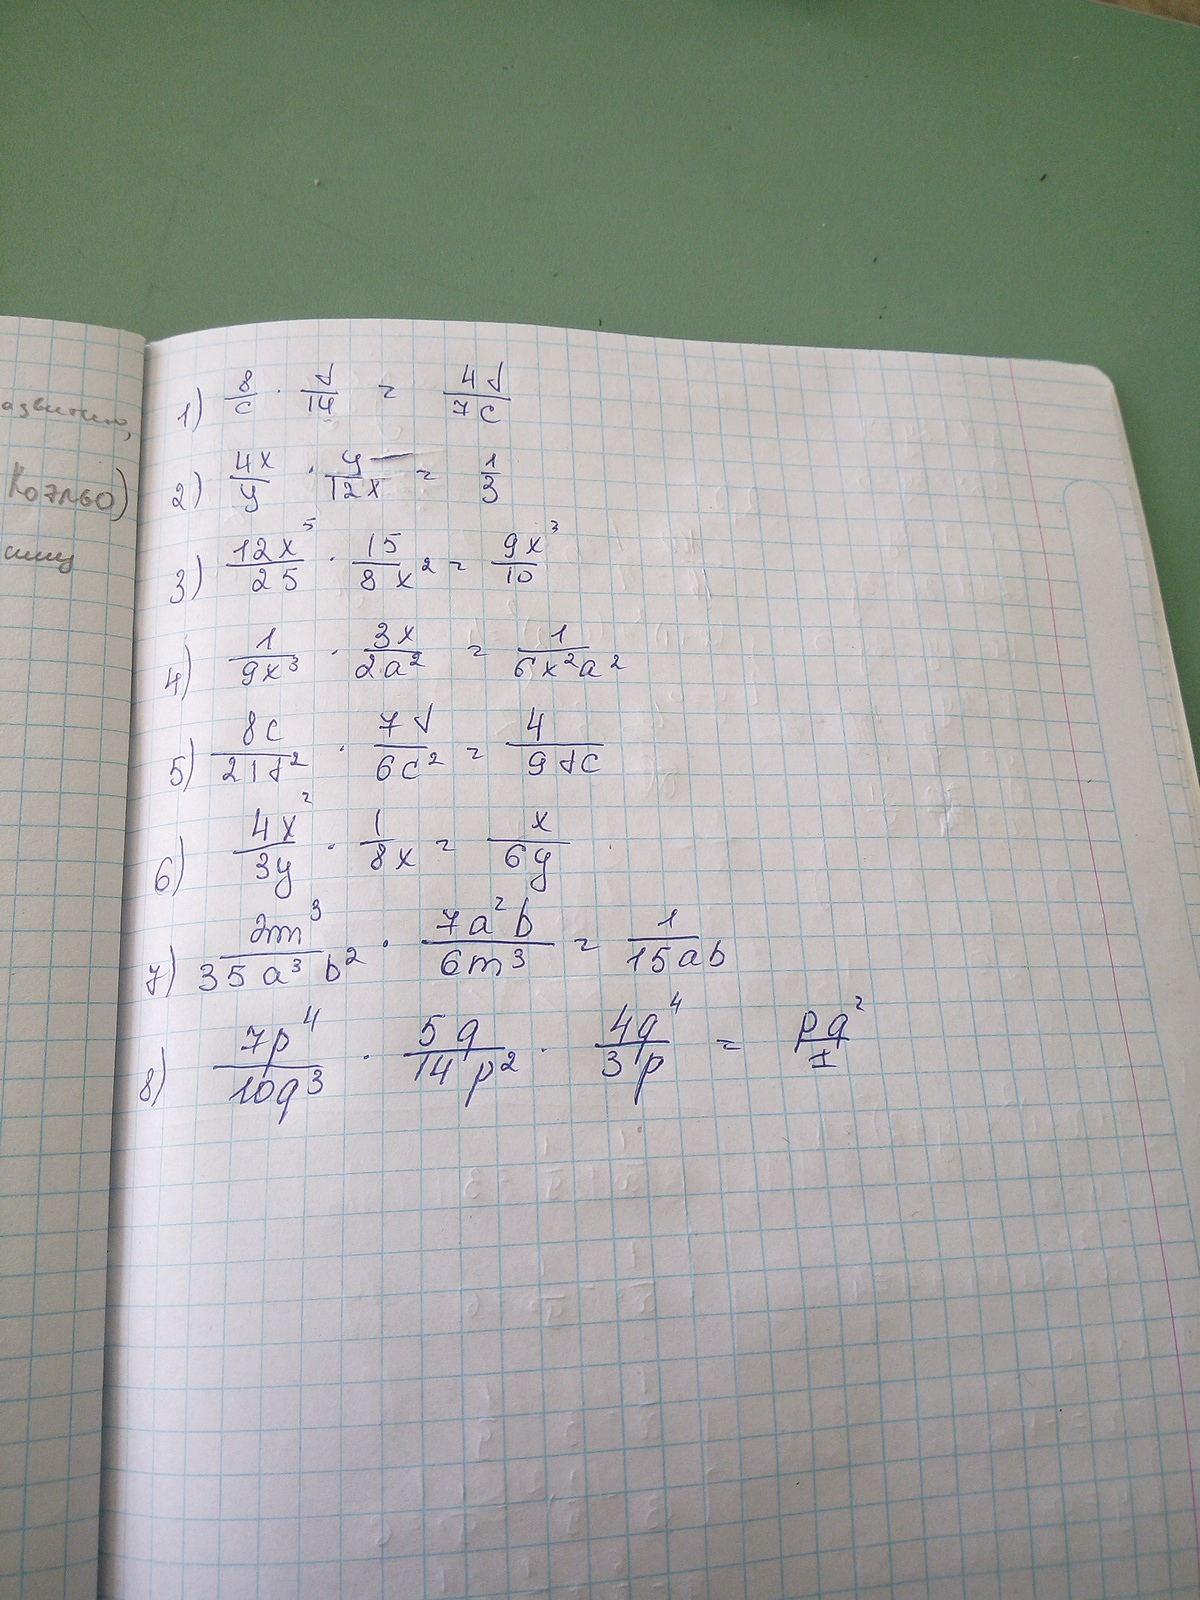 азвитию,
Ко7л60)
1) 8/c · d/14 = 4d/7c
2) 4x/y · y/12x = 1/3
3) 12x⁵/25 · 15/8x² = 9x³/10
4) 1/9x³ · 3x/2a² = 1/6x²a²
5) 8c/21d² · 7d/6c² = 4/9dc
6) 4x²/3y · 1/8x = x/6y
7) 2m³/35a³b² · 7a²b/6m³ = 1/15ab
8) 7p⁴/10q³ · 5q/14p² · 4q⁴/3p = pq²/1